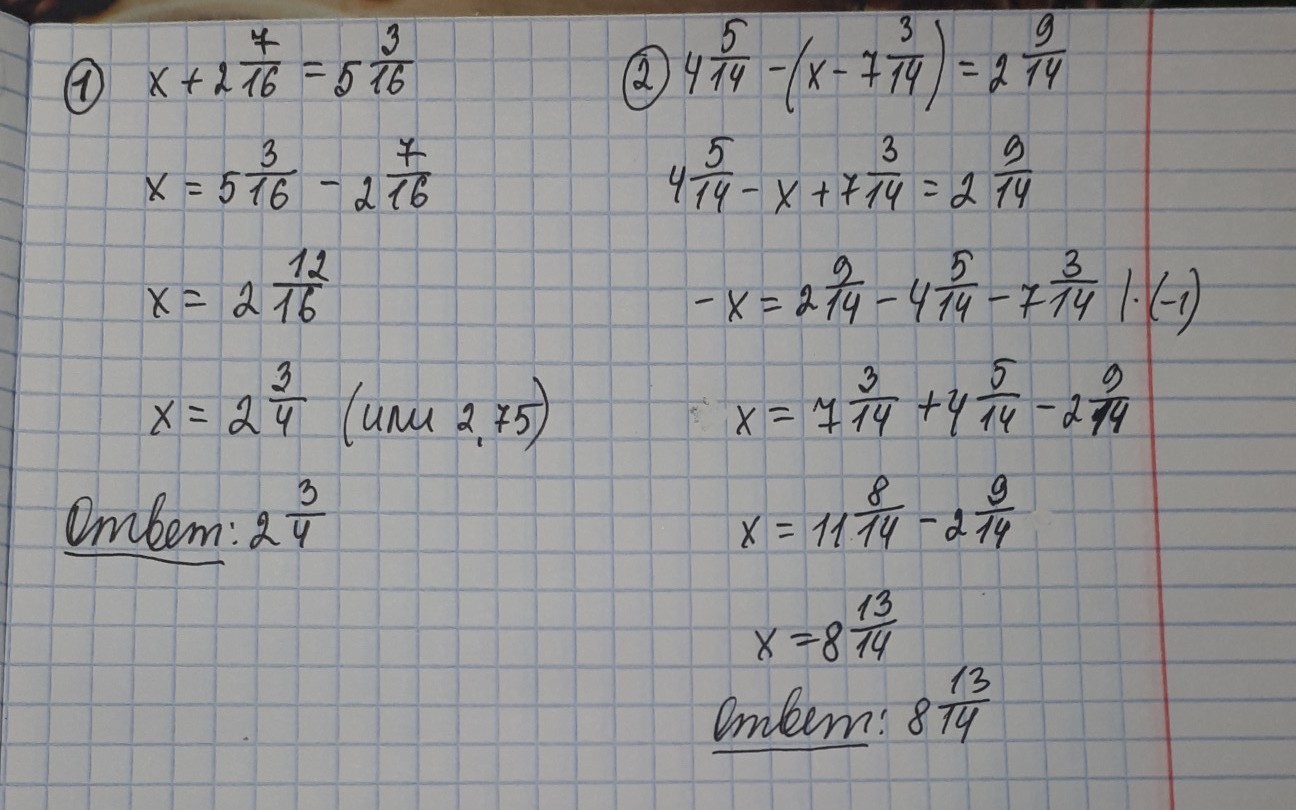 ① x + 2 7/16 = 5 3/16
x = 5 3/16 - 2 7/16
x = 2 12/16
x = 2 3/4 (или 2,75)
Ответ: 2 3/4
② 4 5/14 - (x - 7 3/14) = 2 9/14
4 5/14 - x + 7 3/14 = 2 9/14
- x = 2 9/14 - 4 5/14 - 7 3/14 | · (-1)
x = 7 3/14 + 4 5/14 - 2 9/14
x = 11 8/14 - 2 9/14
x = 8 13/14
Ответ: 8 13/14